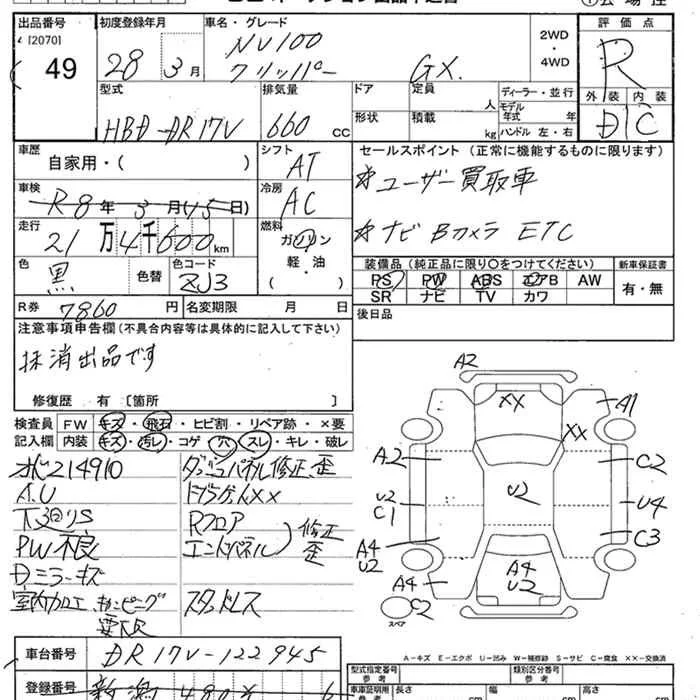 出品番号 初度登録年月 車名・グレード 評価点
[2070] 49 28年3月 NV100 クリッパー GX. 2WD・4WD R
外装 内装
D C
型式 排気量 ドア 定員 人 ディーラー・並行
HBD-DR17V 660cc 形状 積載 kg モデル年式 年式 ハンドル 左・右
車歴 シフト セールスポイント(正常に機能するものに限ります)
自家用・( ) AT
*ユーザー買取車
車検 R8年3月(15日) 冷房 AC
*ナビ Bカメラ ETC
走行 21万4千600km 燃料 ガソリン 軽・油 ( )
色 黒 色替 色コード ZJ3
装備品(純正品に限り○をつけてください) 新車保証書
PS PW ABS エアB AW 有・無
SR ナビ TV カワ
R券 7860円 名変期限 月 日
後日品
注意事項申告欄(不具合内容等は具体的に記入して下さい)
抹消出品です
修復歴 有〔箇所 〕
検査員 FW キズ・飛石・ヒビ割・リペア跡・×要
記入欄 内装 キズ・汚レ・コゲ・穴・スレ・キレ・破レ
水C214910 ダッシュパネル修正歪
A.U トランクXX
下廻りS Rフロア
PW不良 エンドパネル 修正歪
Dミラーキズ
室内加工 キャンピング スタッドレス
A2
XX
A1
XX
A2
C2
U2
C1
U2
U4
C3
A4
U2
A4
A4
U2
C2
スペア
A-キズ E-エクボ U-凹み W-補修跡 S-サビ C-腐食 XX-交換済
車台番号 DR17V-122945
型式指定番号 参考 類別区分番号 参考
登録番号 新潟 480
車庫証明用 参考 長さ cm 幅 cm 高さ cm